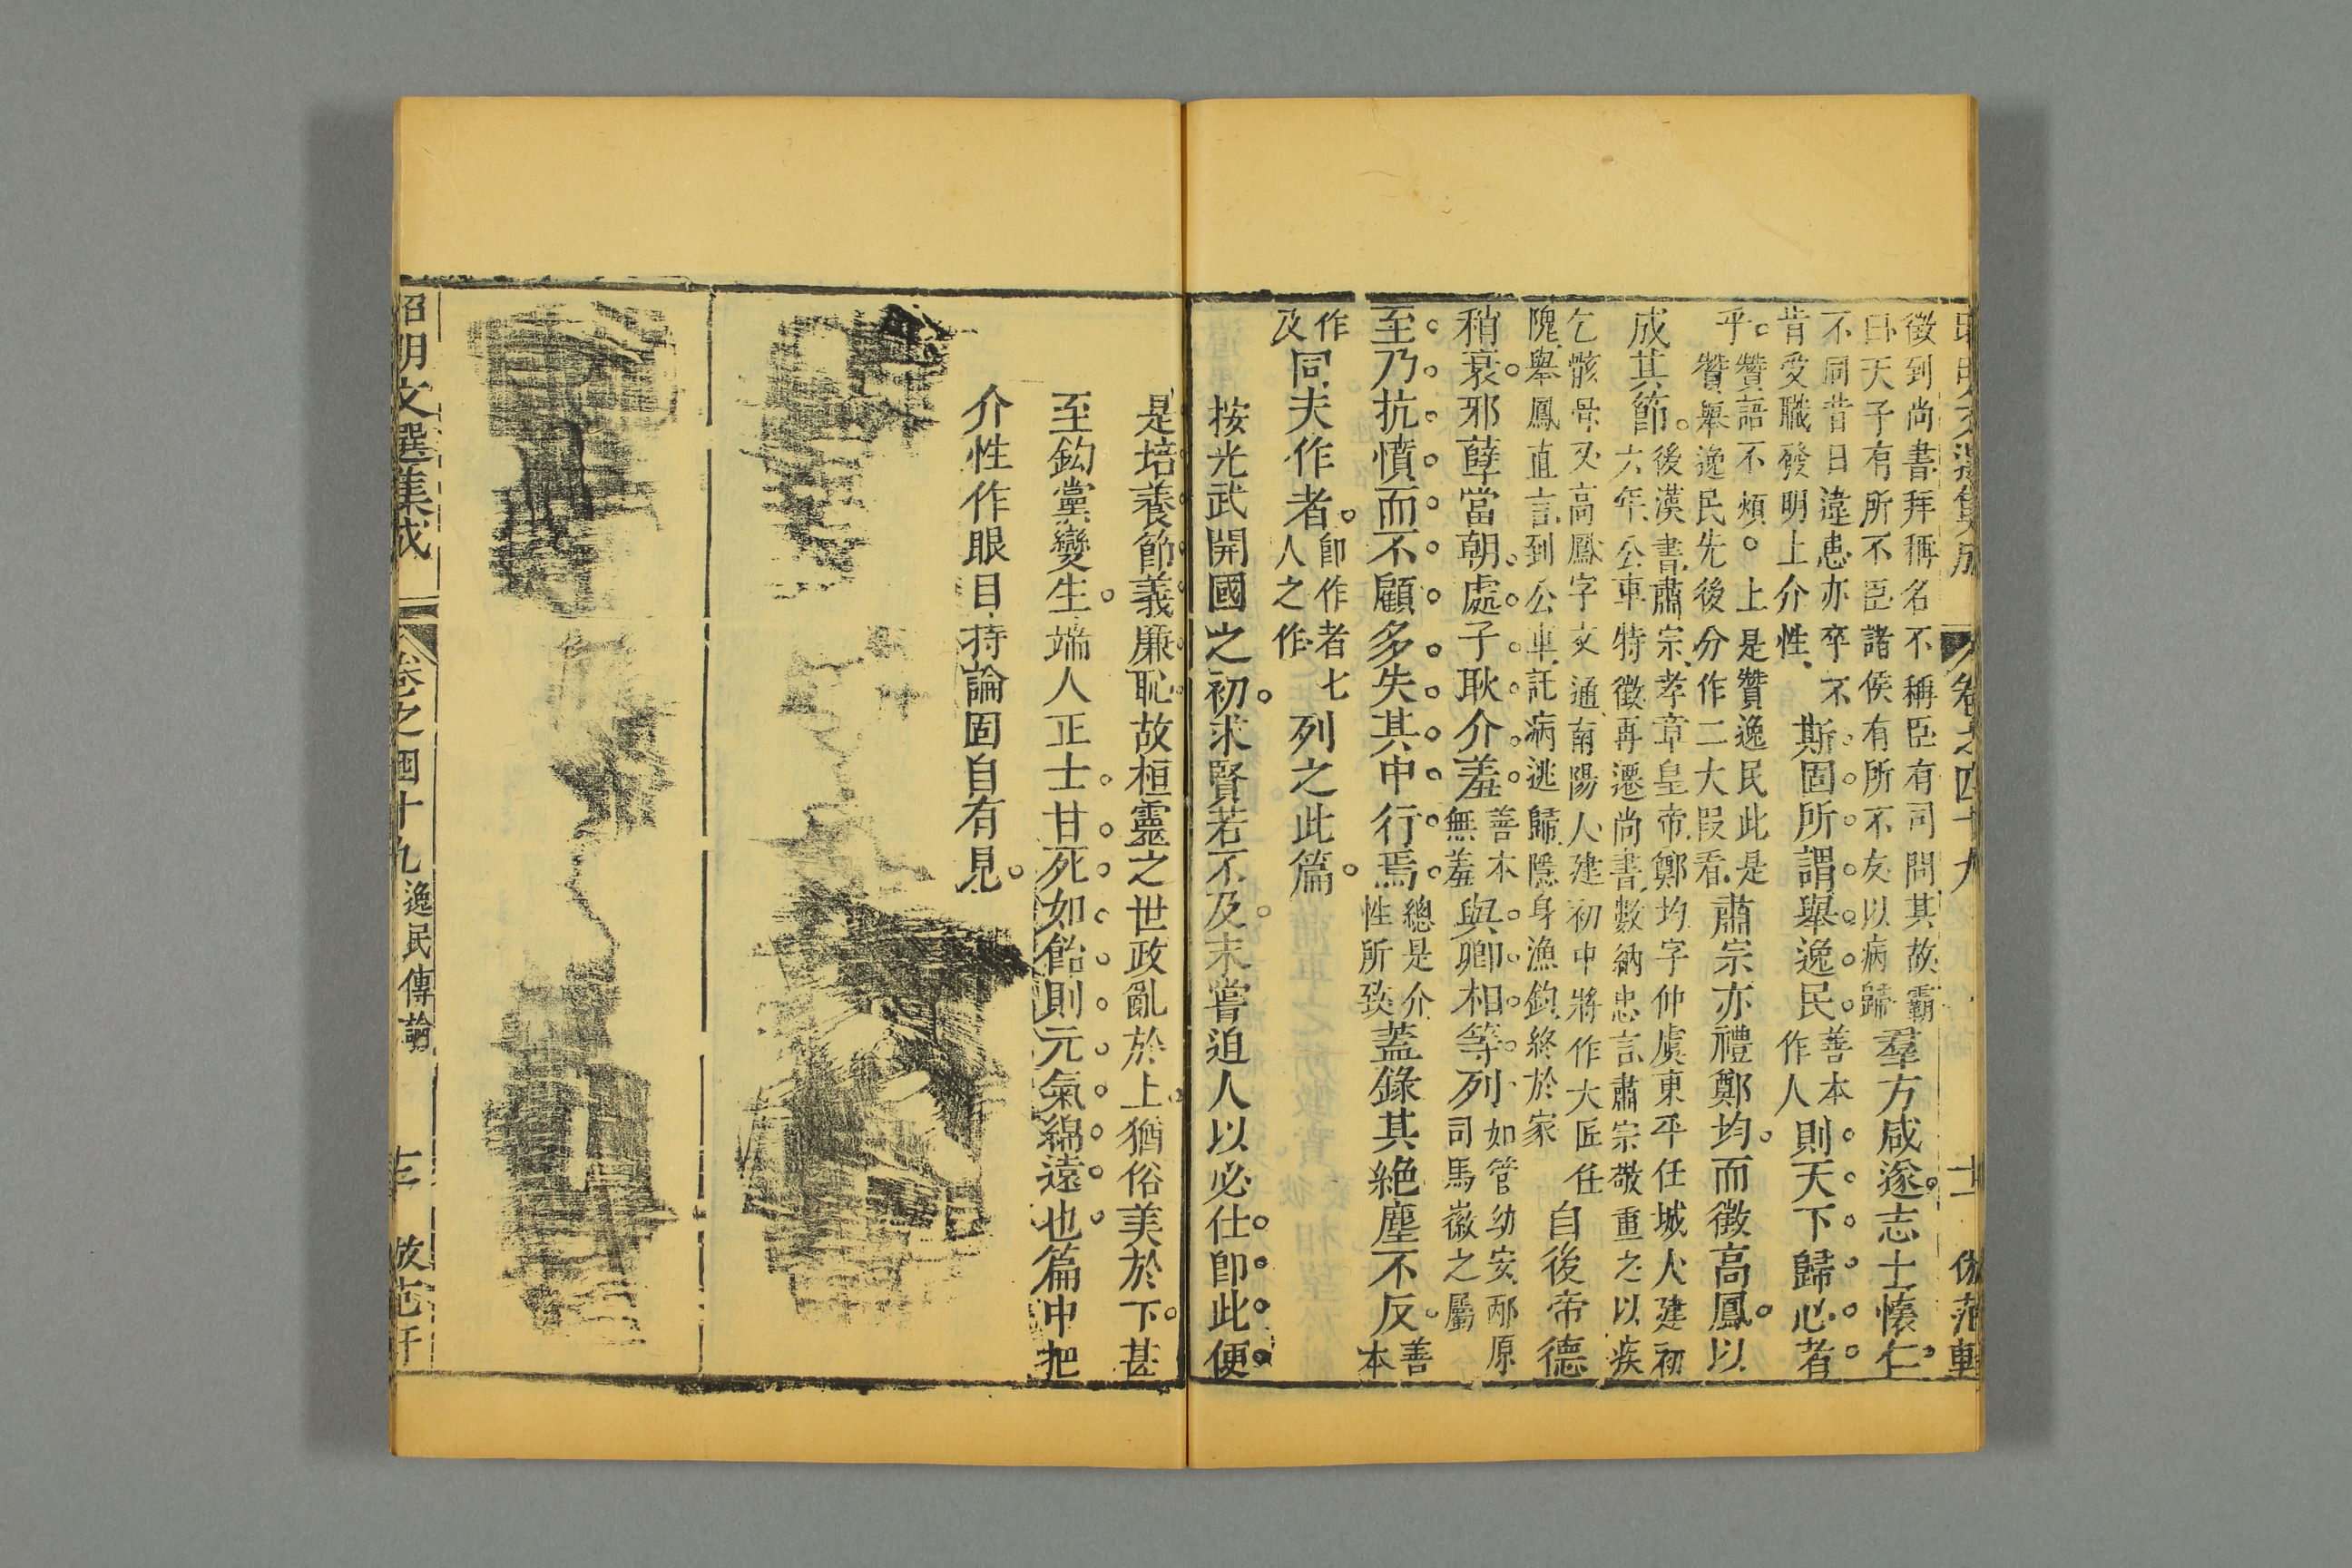 昭明文選集成 卷之四十九 十一 倣范軒
徵到尚書拜稱名不稱臣有司問其故霸
曰天子有所不臣諸侯有所不友以病歸
羣方咸遂。志士懷仁。
不同昔日違惠亦卒不
肯受職發明上介性、
斯固所謂舉逸民
善本
作人
則天下歸心者
乎。
贊語不煩。上是贊逸民此是
贊舉逸民先後分作二大段看
肅宗亦禮鄭均。而徵高鳳。以
成其節。
後漢書肅宗、孝章皇帝、鄭均字仲虞東平任城人建初
六年、公車特徵、再遷尚書、數納忠言、肅宗敬重之以疾
乞骸骨又高鳳字文通、南陽人、建初中將作大匠任
隗、舉鳳直言、到公車、託病逃歸、隱身漁釣、終於家
自後帝德
稍衰。邪孽當朝。處子耿介。羞
善本
無羞
與卿相等列
如管幼安、邴原
司馬徽之屬
至乃抗憤而不顧多失其中行焉
總是介
性所致
蓋錄其絕塵不反。
善
本
作
及
同夫作者。
即作者七
人之作
列之此篇。
按光武開國之初。求賢若不及。末嘗迫人以必仕。即此便
是培養節義廉恥故桓靈之世政亂於上。猶俗美於下。甚
至鈎黨變生。端人正士甘死如飴則元氣綿遠也篇中把
介性作眼目持論固自有見。
昭明文選集成 卷之四十九 逸民傳論